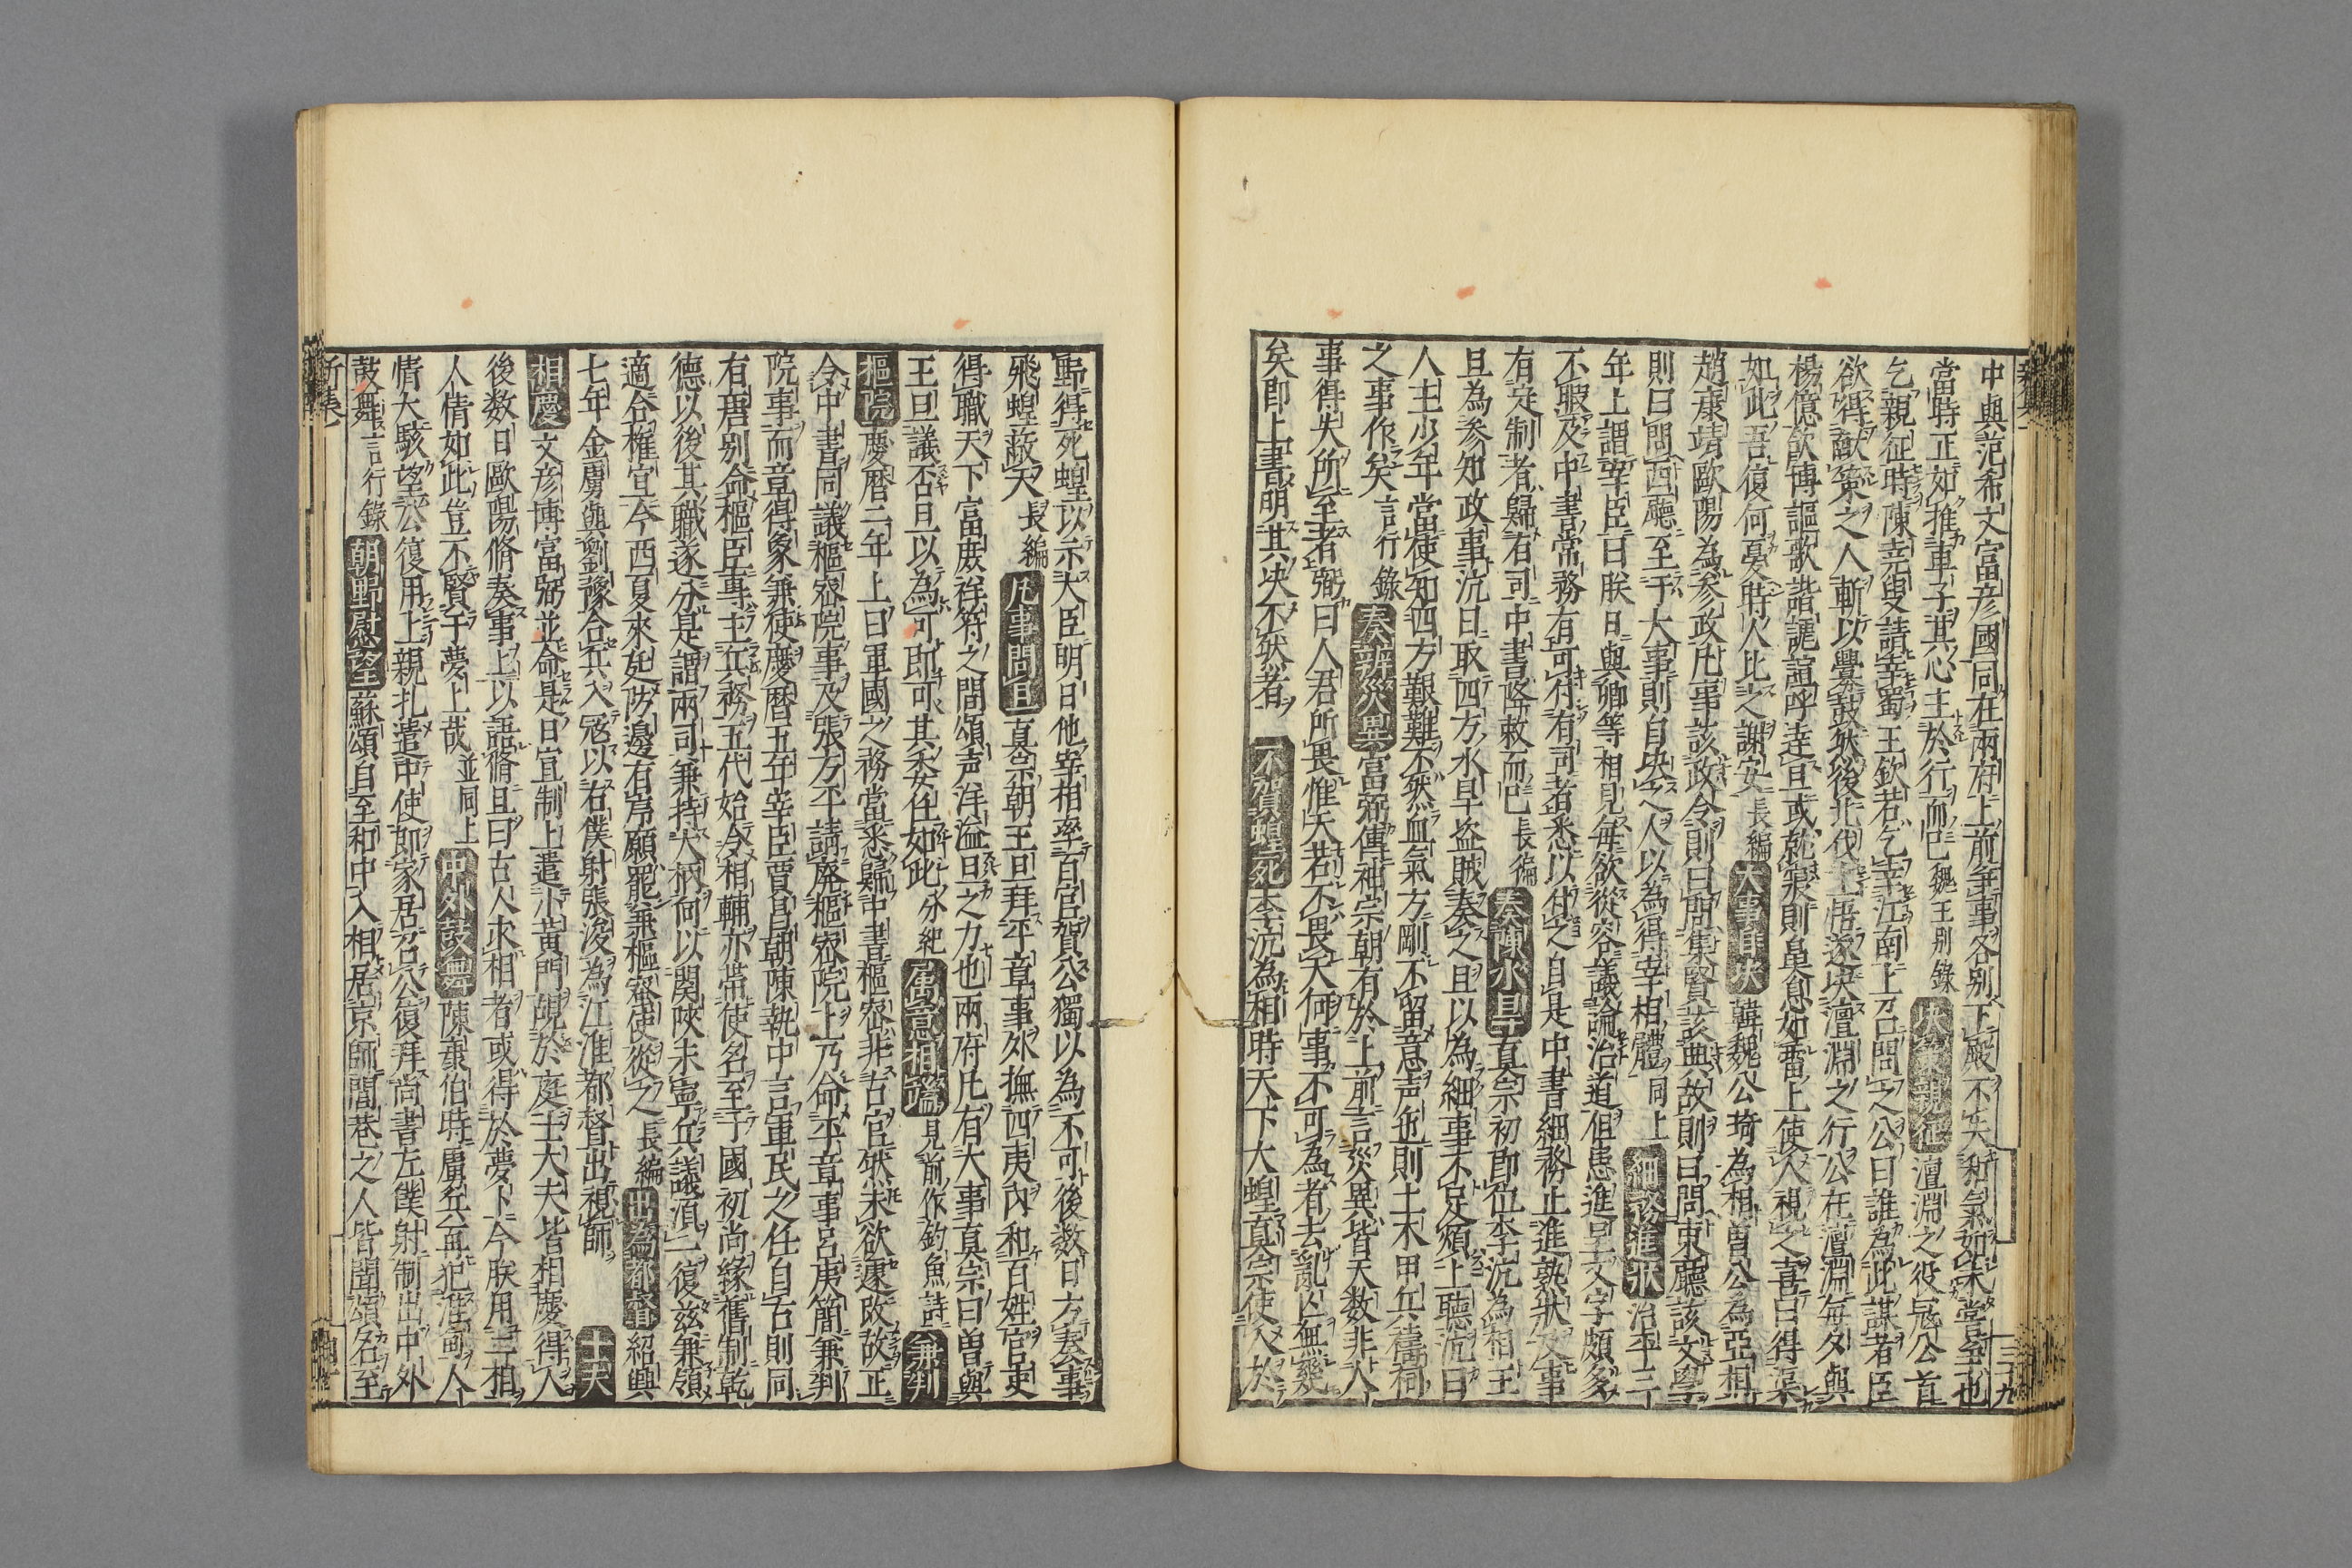 中與范希文富彦國同在兩府上前爭事各別下殿不失和氣如未嘗爭也
當時正如推車子其心主於行而已魏王別錄決策親征澶淵之役寇公首
乞親征時陳堯叟請幸蜀王欽若乞幸江南上召問之公曰誰為此謀者臣
欲得献策之人斬以釁鼓然後北伐上悟遂决澶淵之行公在澶淵每夕與
楊億飲博謳歌諧謔諠呼達旦或就寝則鼻息如雷上使人視之喜曰得渠
如此吾復何憂時人比之謝安長編大事自决韓魏公琦為相曽公為亞相
趙康靖歐陽為参政凡事該政令則曰問集賢該典故則曰問東廳該文學
則曰問西廳至于大事則自决之人以為得宰相體同上細務進狀治平三
年上謂宰臣曰朕日與卿等相見每欲從容議論治道但患進呈文字頗多
不暇及中書常務有可付有司者悉以付之自是中書細務止進熟狀及事
有定制者歸有司中書降敕而已長編奏陳水旱真宗初即位李沆為相王
旦為参知政事沆日取四方水旱盗賊奏之旦以為細事不足煩上聽沆曰
人主少年當使知四方艱難不然血氣方剛不留意声色則土木甲兵禱祠
之事作矣言行錄奏辨災異富弼傳神宗朝有於上前言災異皆天数非人
事得失所至者弼曰人君所畏惟天若不畏天何事不可為者去亂亡無幾
矣即上書明其决不然者不賀蝗死李沆為相時天下大蝗真宗使人於
野得死蝗以示大臣明日他宰相率百官賀公獨以為不可後数日方奏事
飛蝗蔽天長編凡事問旦真宗朝王旦拜平章事外撫四夷内和百姓官吏
得職天下富庻祥符之間頌声洋溢旦之力也兩府凡有大事真宗曰曽與
王旦議否旦以為可即可其委任如此分紀属意相端見前作釣魚詩兼判
樞院慶暦二年上曰軍國之務當悉歸中書樞密非古官然未欲遽改故正
令中書同議樞密院事及張方平請廢樞密院上乃命平章事呂夷簡兼判
院事而章得象兼使慶暦五年宰臣賈昌朝陳執中言軍民之任自古則同
有唐別命樞臣專主兵務五代始令相輔亦帯使名至于國初尚緣舊制乾
德以後其職遂分是謂兩司兼持大柄向以関陜未寧兵議湏一復兹兼領
適合權宜今西夏來庭防邊有序願罷兼樞密使從之長編出為都督紹興
七年金虜與劉豫合兵入冦以右僕射張浚為江淮都督出視師士夫
相慶文彦博富弼並命是日宣制上遣小黃門覘於庭士大夫皆相慶得人
後数日歐陽脩奏事上以語脩且曰古人求相者或得於夢卜今朕用二相
人情如此豈不賢于夢卜哉並同上中外鼓舞陳康伯時虜兵再犯淮甸人
情大駭望公復用上親扎遣中使即家居召公復拜尚書左僕射制出中外
鼓舞言行錄朝野慰望蘇頌自至和中入相居京師閭巷之人皆聞頌名至